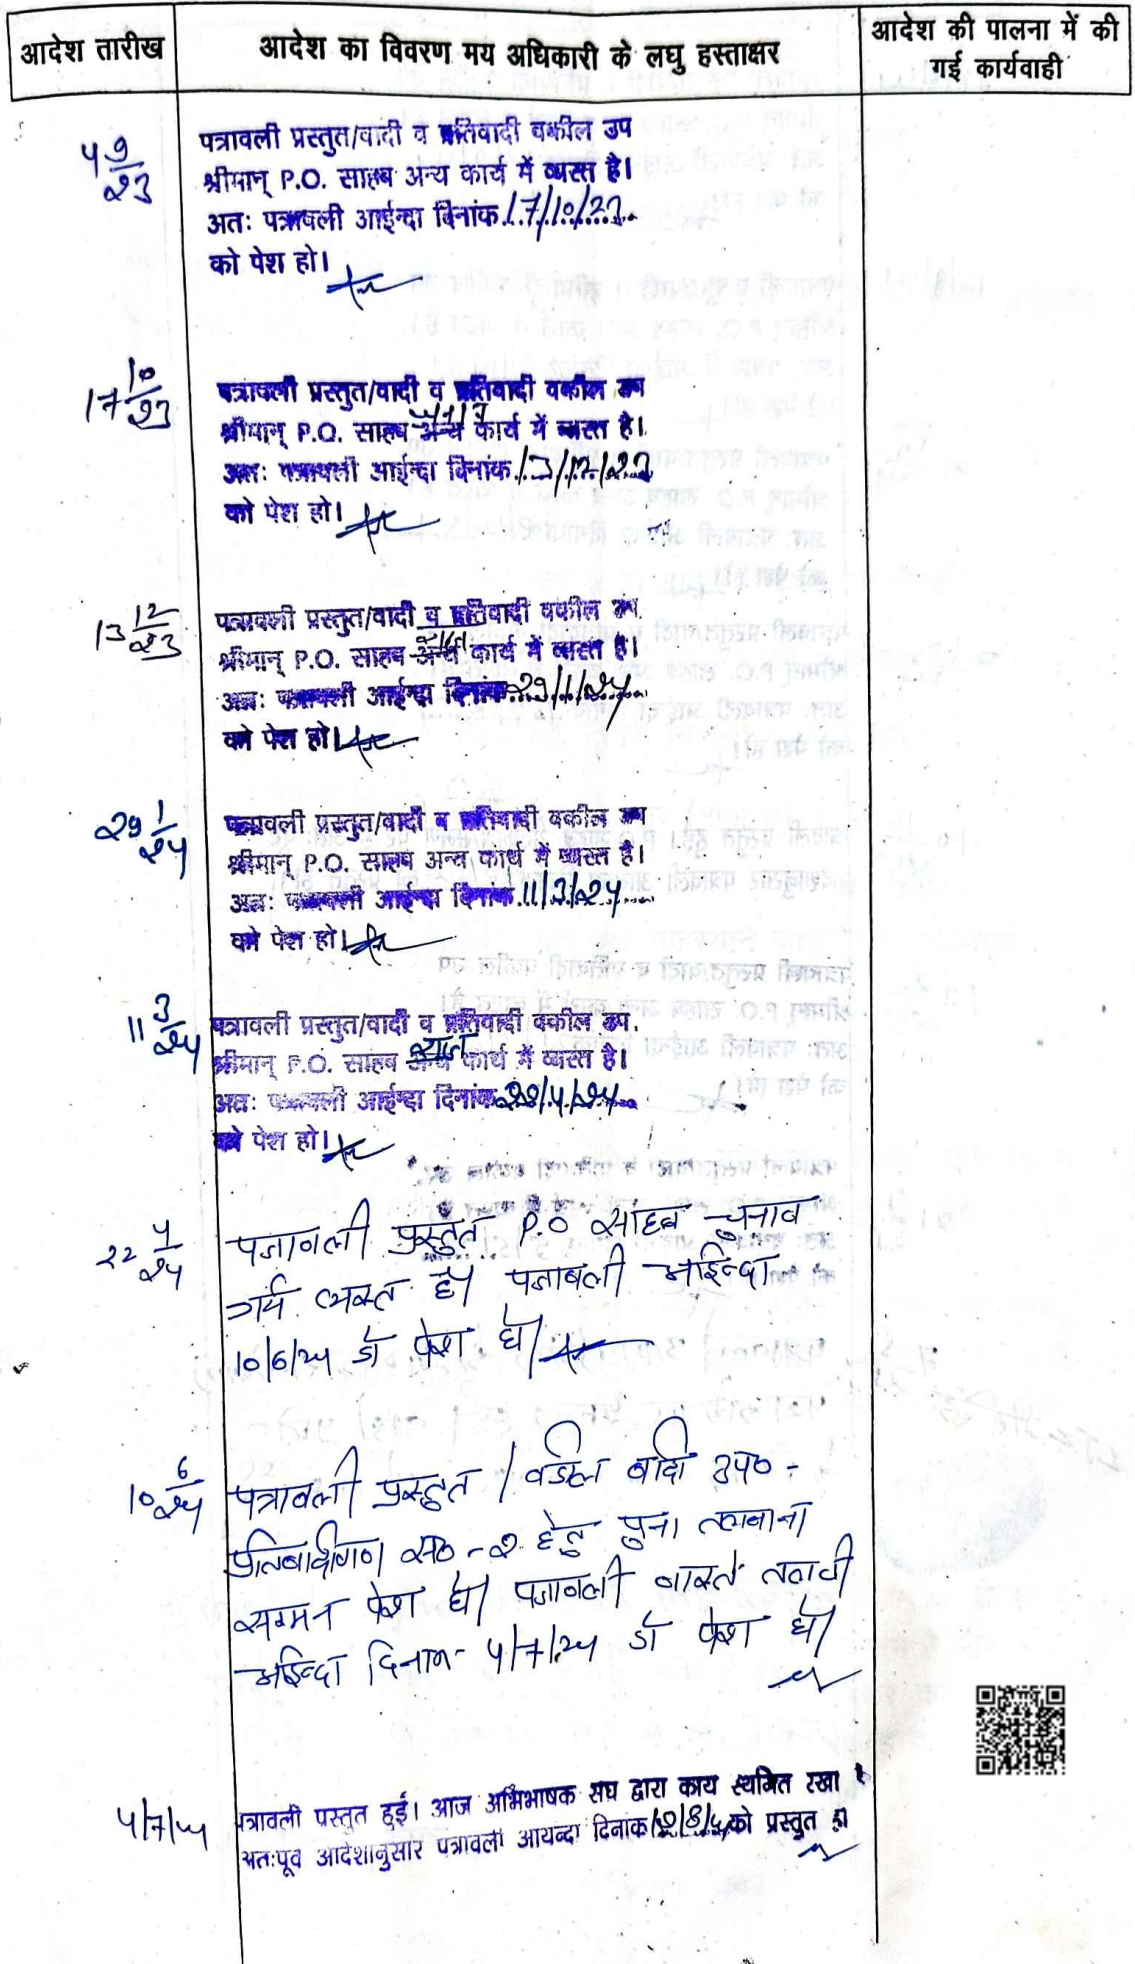 आदेश तारीख
आदेश का विवरण मय अधिकारी के लघु हस्ताक्षर
आदेश की पालना में की
गई कार्यवाही
4 9/23
पत्रावली प्रस्तुत/वादी व प्रतिवादी वकील उप
श्रीमान् P.O. साहब अन्य कार्य में व्यस्त है।
अतः पत्रावली आईन्दा दिनांक 17/10/23
को पेश हो।
17 10/23
पत्रावली प्रस्तुत/वादी व प्रतिवादी वकील उप
श्रीमान् P.O. साहब अन्य कार्य में व्यस्त है।
अतः पत्रावली आईन्दा दिनांक 13/12/23
को पेश हो।
13 12/23
पत्रावली प्रस्तुत/वादी व प्रतिवादी वकील उप
श्रीमान् P.O. साहब अन्य कार्य में व्यस्त है।
अतः पत्रावली आईन्दा दिनांक 29/1/24
को पेश हो।
29 1/24
पत्रावली प्रस्तुत/वादी व प्रतिवादी वकील उप
श्रीमान् P.O. साहब अन्य कार्य में व्यस्त है।
अतः पत्रावली आईन्दा दिनांक 11/3/24
को पेश हो।
11 3/24
पत्रावली प्रस्तुत/वादी व प्रतिवादी वकील उप.
श्रीमान् P.O. साहब अन्य कार्य में व्यस्त है।
अतः पत्रावली आईन्दा दिनांक 22/4/24
को पेश हो।
22 4/24
पत्रावली प्रस्तुत P.O साहब चुनाव
कार्य व्यस्त है। पत्रावली आईन्दा
10/6/24 को पेश हो।
10 6/24
पत्रावली प्रस्तुत / वकील वादी उप० -
प्रतिवादीगण स० - 2 हेतु पुनः तलबाना
सम्मन पेश हो। पत्रावली वास्ते तलबी
आईन्दा दिनांक - 4/7/24 को पेश हो।
4/7/24
पत्रावली प्रस्तुत हुई। आज अभिभाषक संघ द्वारा काय स्थगित रखा है
अतःपूव आदेशानुसार पत्रावली आयन्दा दिनांक 12/8/24 को प्रस्तुत हो